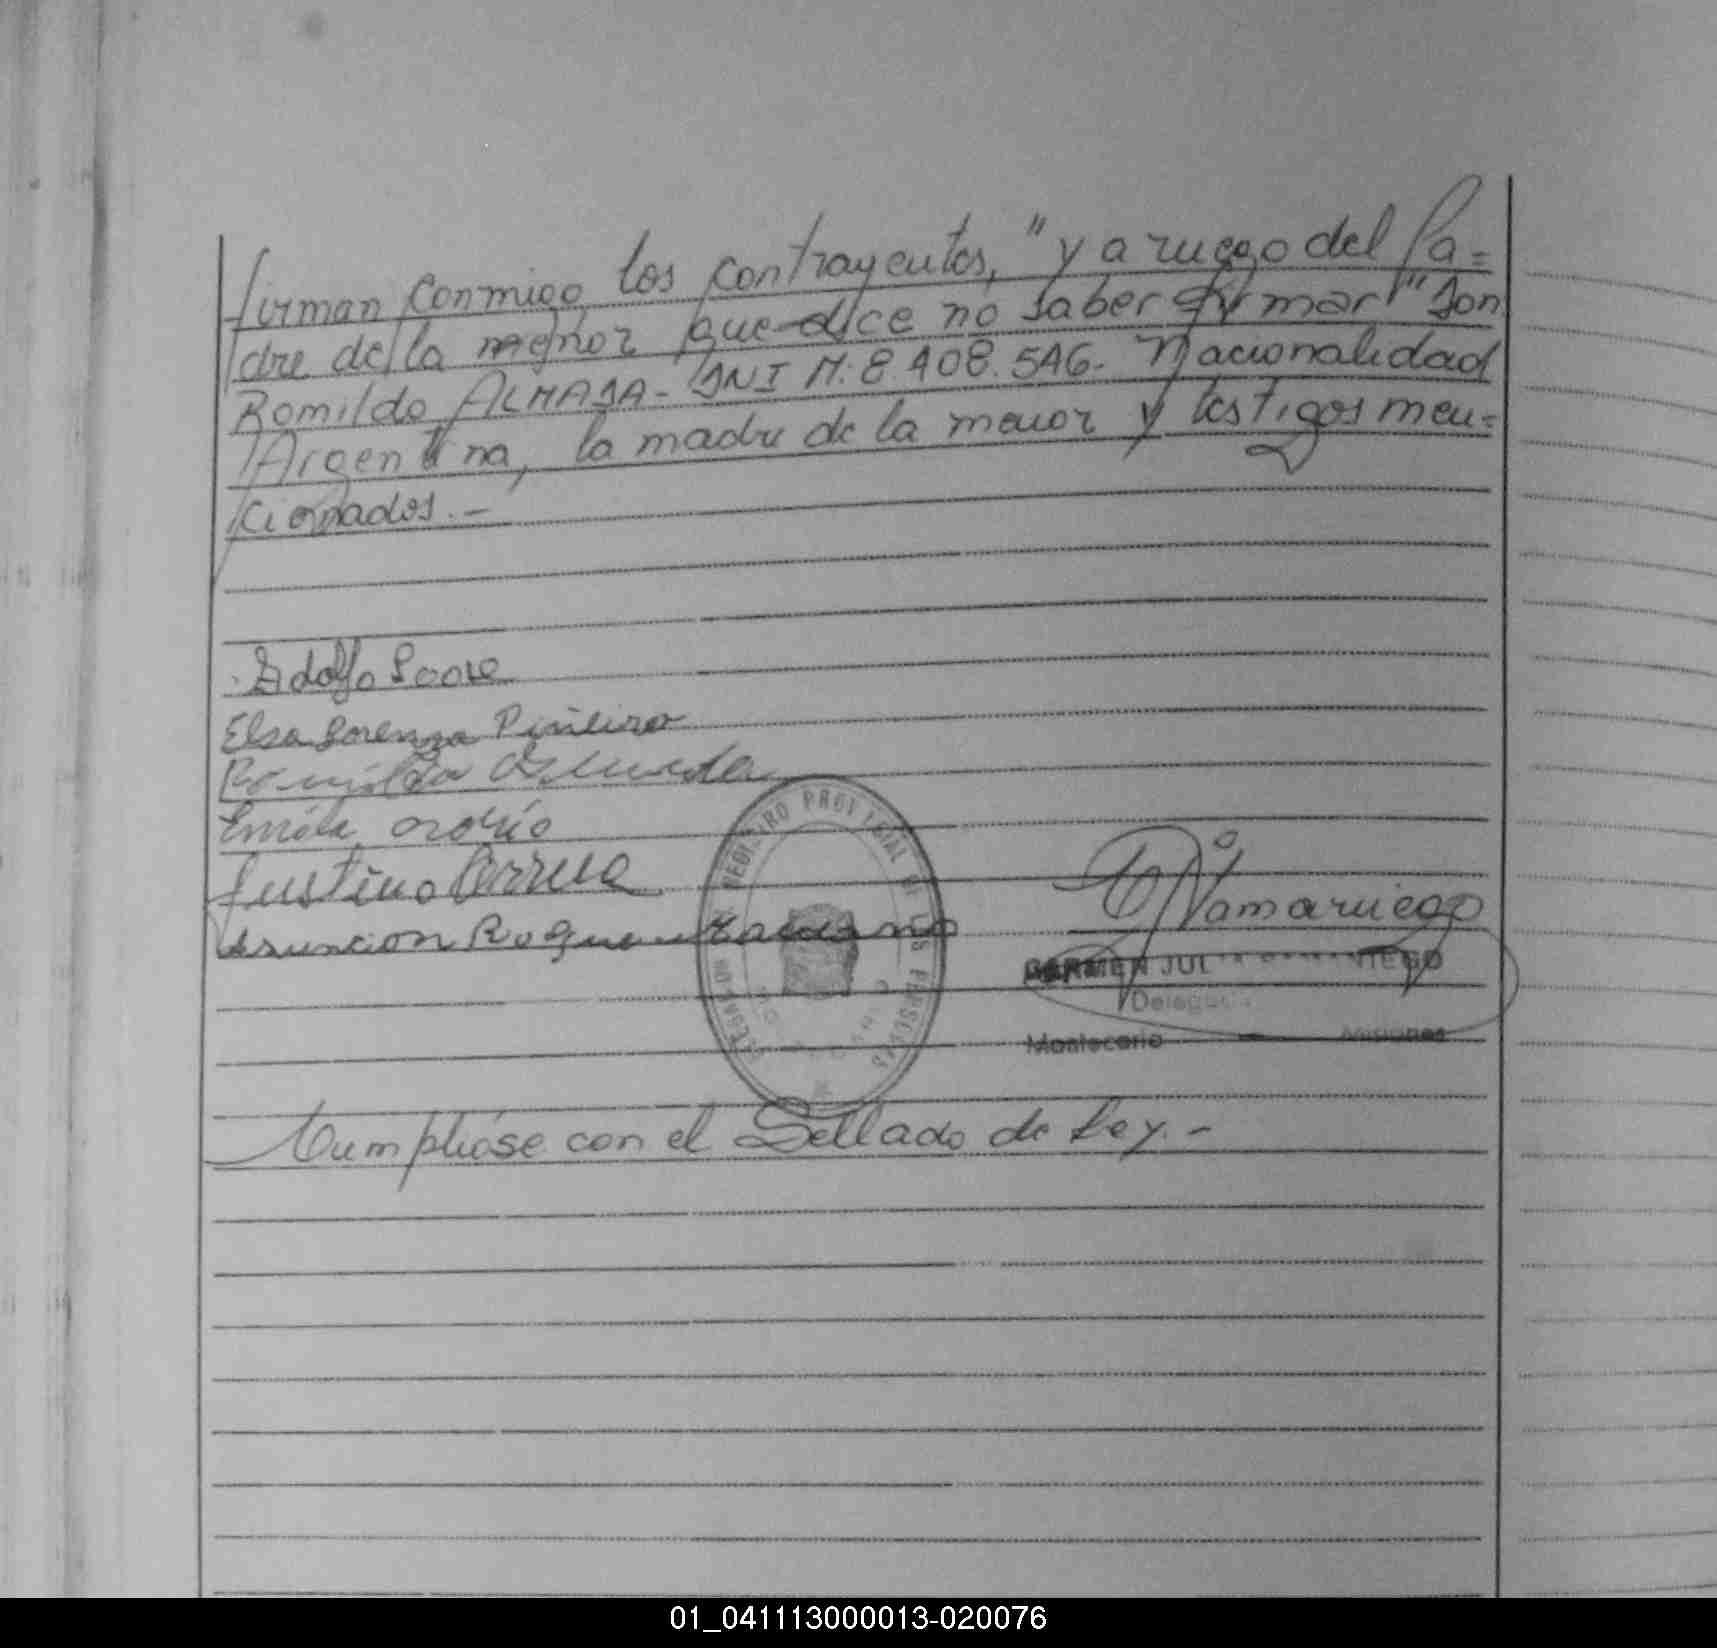 firman conmigo los contrayentes, "y a ruego del Pa=
dre de la menor que dice no saber firmar" Don
Romildo ALMADA - DNI M: 8.408.546. Nacionalidad
Argentina, la madre de la menor y testigos men=
cionados. -
Adolfo
Elsa Lorenza Piñeiro
Romildo Almada
Emilia
Justino Correa
Asuncion Roque
REGISTRO PROVINCIAL DE LAS PERSONAS
Samaniego
CARMEN JULIA SAMANIEGO
Delegada
Montecarlo - Misiones
Cumplióse con el Sellado de Ley. -
01_041113000013-020076